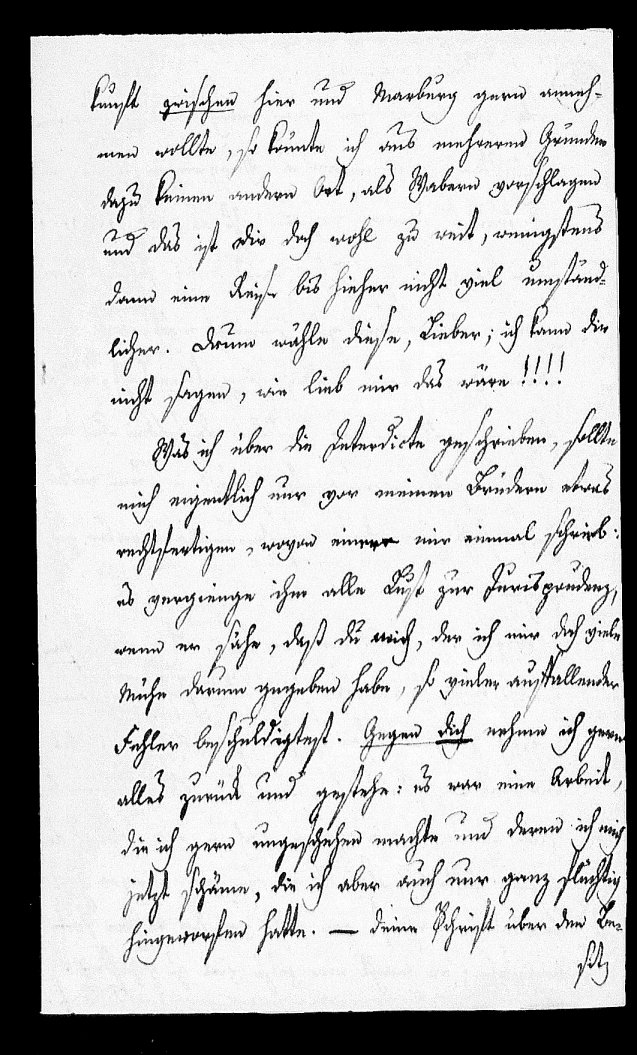 kunft zwischen hier und Marburg gern anneh-
men wollte, so könnte ich aus mehreren Gründen
dazu keinen andern Ort, als Wabern vorschlagen
und das ist dir doch wohl zu weit, wenigstens
dann eine Reise bis hieher nicht viel umständ-
licher. Drum wähle diese, Lieber; ich kann dir
nicht sagen, wie lieb mir das wäre!!!!
Was ich über die Interdicte geschrieben, sollte
mich eigentlich nur vor meinen Brüdern etwas
rechtfertigen, wovon einer mir einmal schrieb:
es vergienge ihm alle Lust zur Jurisprudenz,
wenn er sähe, daß du mich, der ich mir doch viele
Mühe darum gegeben habe, so vieler auffallender
Fehler beschuldigtest. Gegen dich nehme ich gern
alles zurück und gestehe: es war eine Arbeit,
die ich gern ungeschehen machte und deren ich mich
jetzt schäme, die ich aber auch nur ganz flüchtig
hingeworfen hatte. — deine Schrift über den Be-
sitz